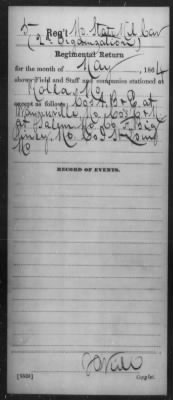 5 Reg't Mo. State Mil. Cav.
(2d Organization)
Regimental Return
for the month of May, 1864
shows Field and Staff and companies stationed at
Rolla, Mo.
except as follows: Cos. A, B & E at
Waynesville, Mo. Cos.
at Salem, Mo. Co. F Big
Piney, Mo. Co. I St. Louis
Mo
RECORD OF EVENTS.
(552)
Copyist.